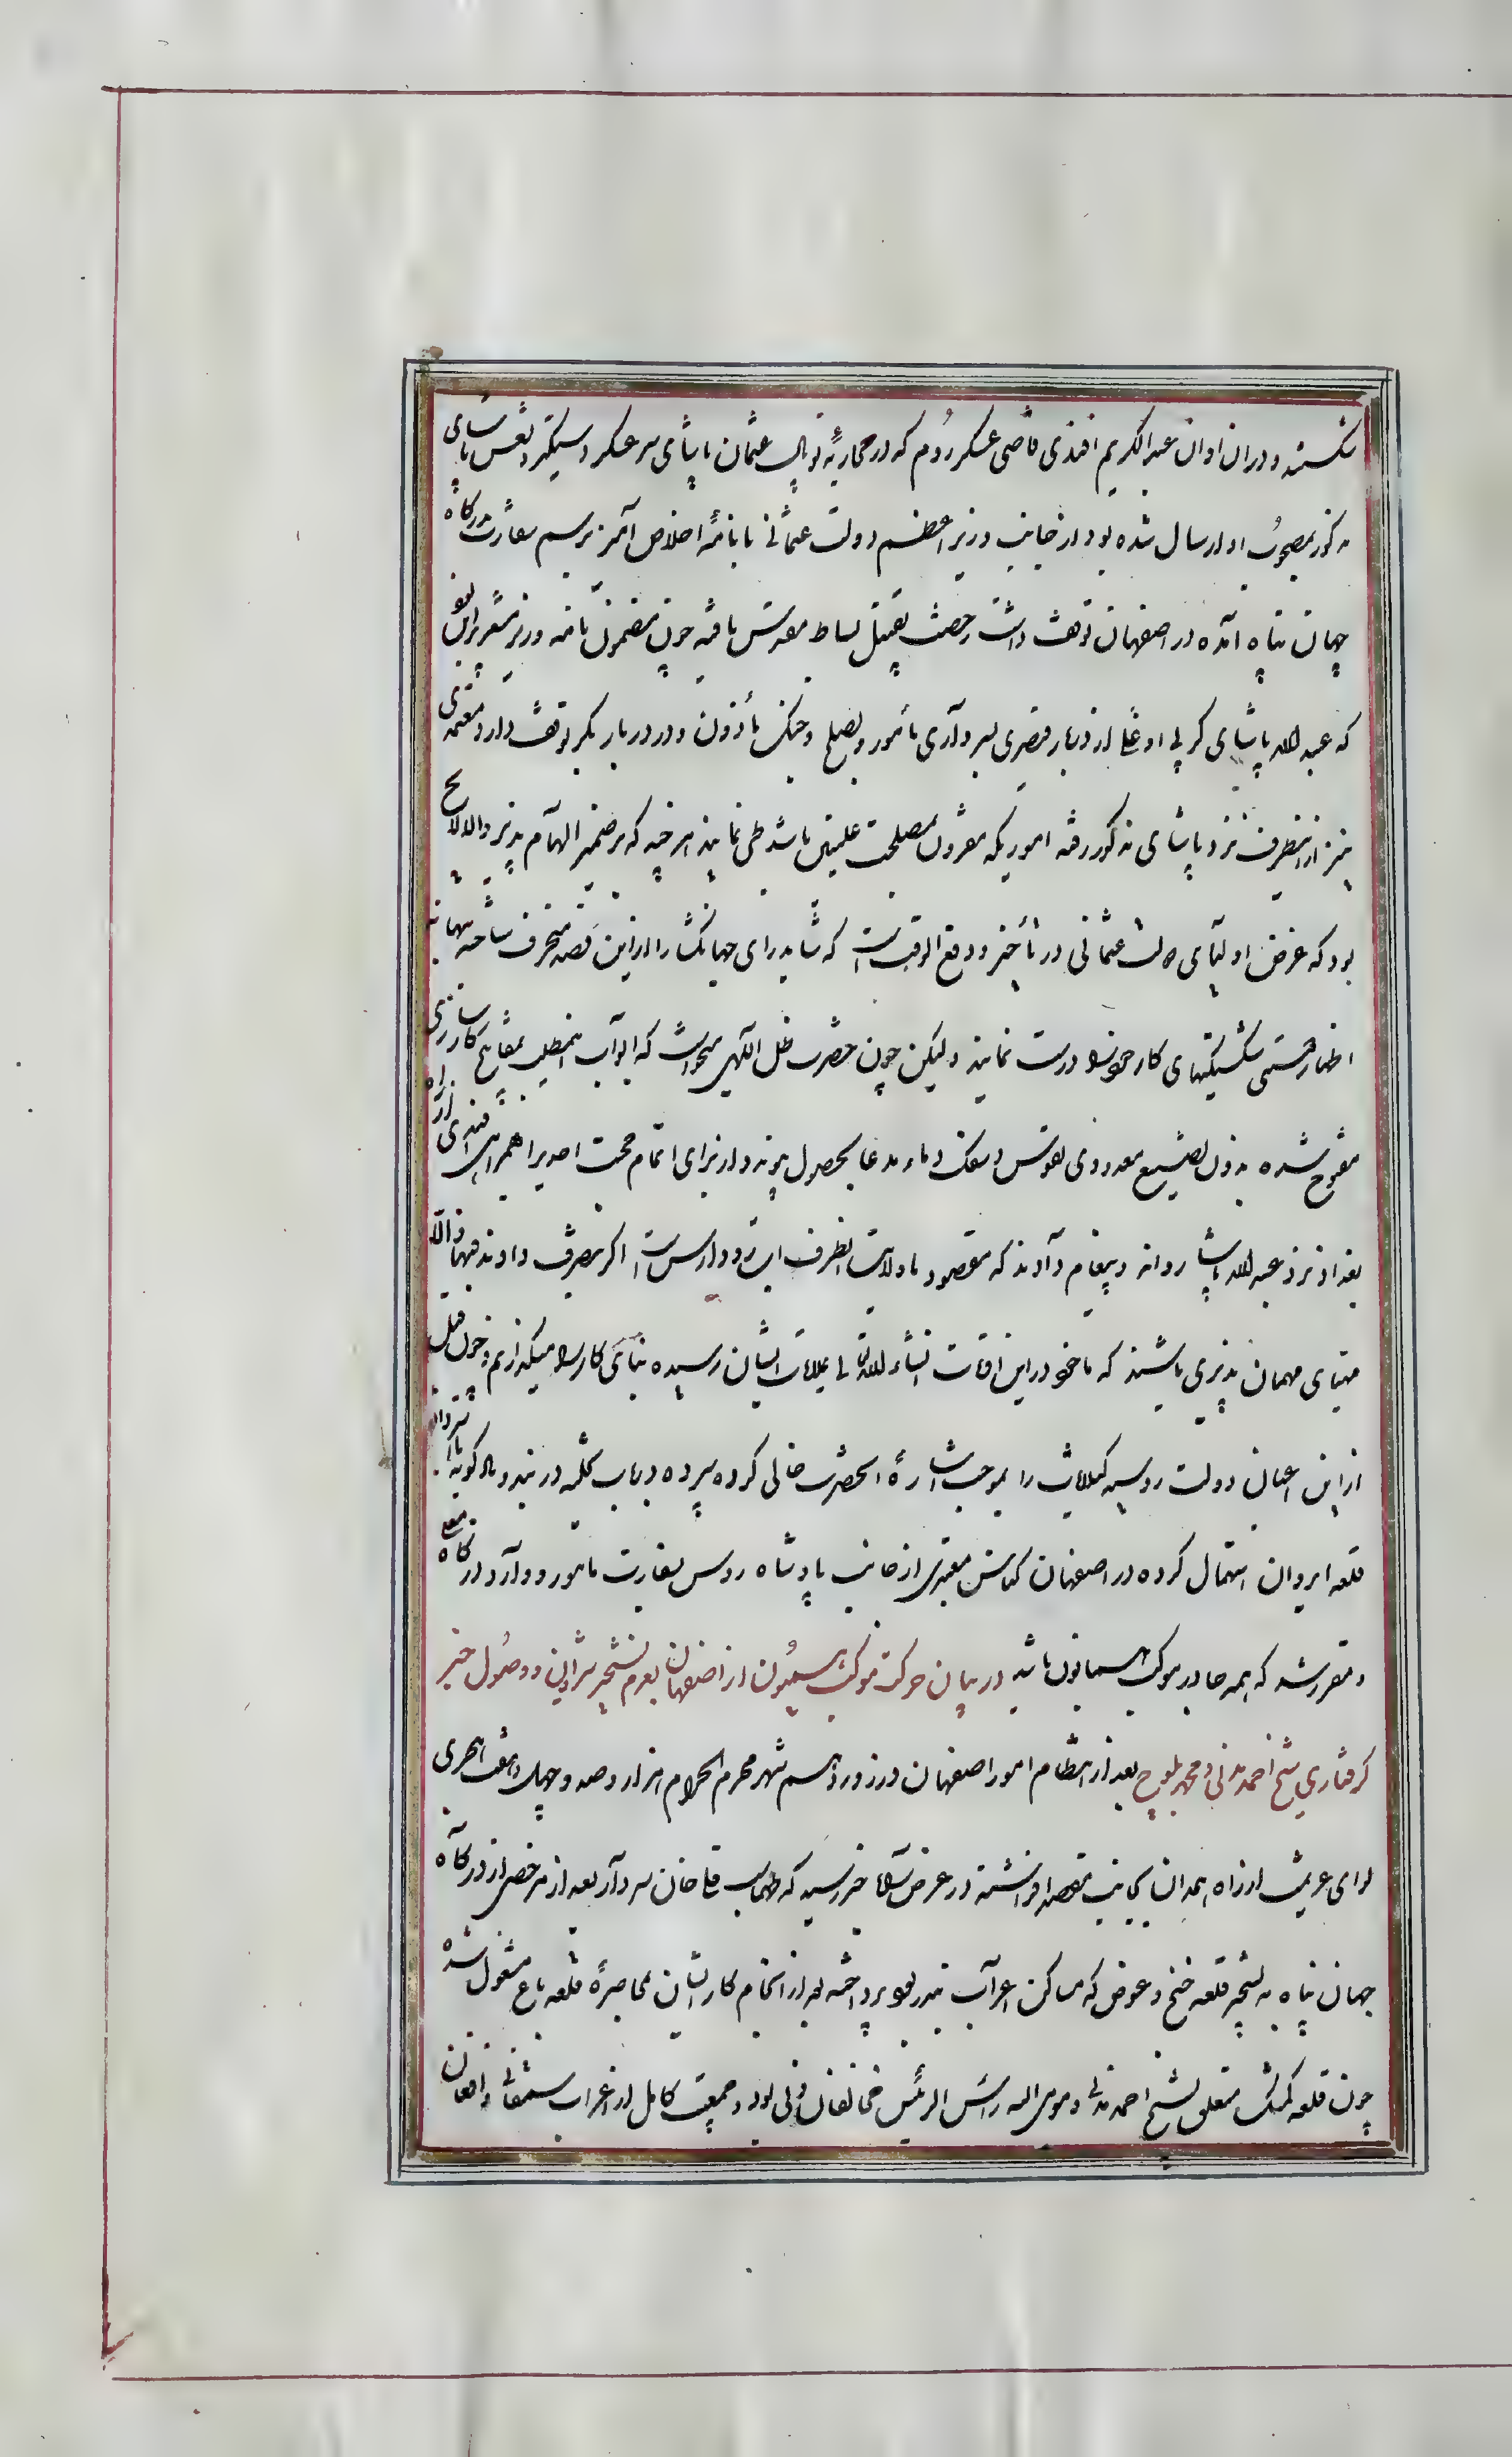 شکسته و در ان اوان عبدالکریم افندی قاضی عسکر روم که در محاربهٔ توپال عثمان پاشای سر عسکر دستگیر و نعش پاشای
مذکور بمصحوب او ارسال شده بود از جانب وزیر اعظم دولت عثمانی با نامهٔ اخلاص آمیز برسم سفارت بدرکاه
جهان پناه آمده در اصفهان توقف داشت رخصت تقبیل بساط مقدس یافته چون مضمون نامه وزیر مشعر براین بود
که عبدالله پاشای کوپرلی اوغلی از دربار قیصری بسرداری مأمور و بصلح و جنک مأذون و در دیار بکر توقف دارد معتمدی
نیز از اینطرف نزد پاشای مذکور رفته اموریکه مقرون بمصلحت علیتین باشد طی نمایند هر چند که بر ضمیر الهام پذیر والا لایح
بود که غرض اولیای دولت عثمانی در تأخیر و دفع الوقت است که شاید رای جهانکشا را از این قصد منحرف ساخته بهانه
اظهار دوستی شکستیکهای کار خود را درست نمایند ولیکن چون حضرت ظل اللهی میخواست که ابواب اینمطلب بمفاتیح کارسازی
مفتوح شده بدون تضییع معدودی نفوس و سفک دماء مدعا بحصول پیوندد از برای اتمام حجت احدی را همراه افندی از راه
بغداد نزد عبدالله پاشا روانه و پیغام دادند که مقصود ما ولایات انطرف آب رود ارس است اکر بتصرف دادند فبها والا
مهیای مهمان پذیری باشند که ما خود در این اوقات انشاء الله تعالی بملاقات ایشان رسیده بنای کار را میکذاریم و چون قبل
از این اعیان دولت روسیه کیلانات را بموجب اشارهٔ انحضرت خالی کرده سپرده و در باب تخلیه دربند و بادکوبه تا تسخیر
قلعه ایروان استمهال کرده در اصفهان کناس معتبری از جانب پادشاه روس بسفارت مامور و وارد درکاه معلی
و مقرر شد که همه جا در موکب همایون باشد در بیان حرکت موکب همیون از اصفهان بعزم تسخیر شیروان و وصول خبر
کرفتاری شیخ احمد مدنی و محمد بلوچ بعد از انتظام امور اصفهان در روز دوازدهم شهر محرم الحرام هزار و صد و چهل و هفت هجری
لوای عزیمت از راه همدان بجانب مقصد افراشته در عرض راه خبر رسید که طهماسب قلی خان سردار بعد از مرخصی از درکاه
جهان پناه به تسخیر قلعه خنج و عوض که مساکن اعراب بندر بود پرداخته بعد از انجام کار ایشان بمحاصرهٔ قلعه باغ مشغول شده
چون قلعه کمشک متعلق بشیخ احمد مدنی و مومی الیه رأس الرئیس مخالفان دنی بود و جمعیت کامل از اعراب سنقانی و افغان